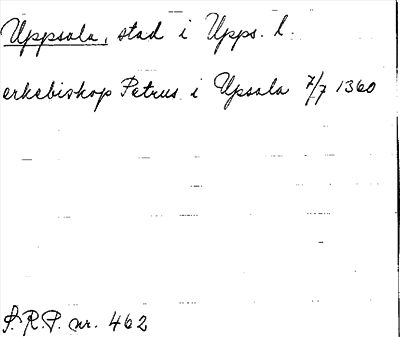 Uppsala, stad i Upps. l.
erkebiskop Petrus i Upsala 7/7 1360
S.R.P. nr. 462